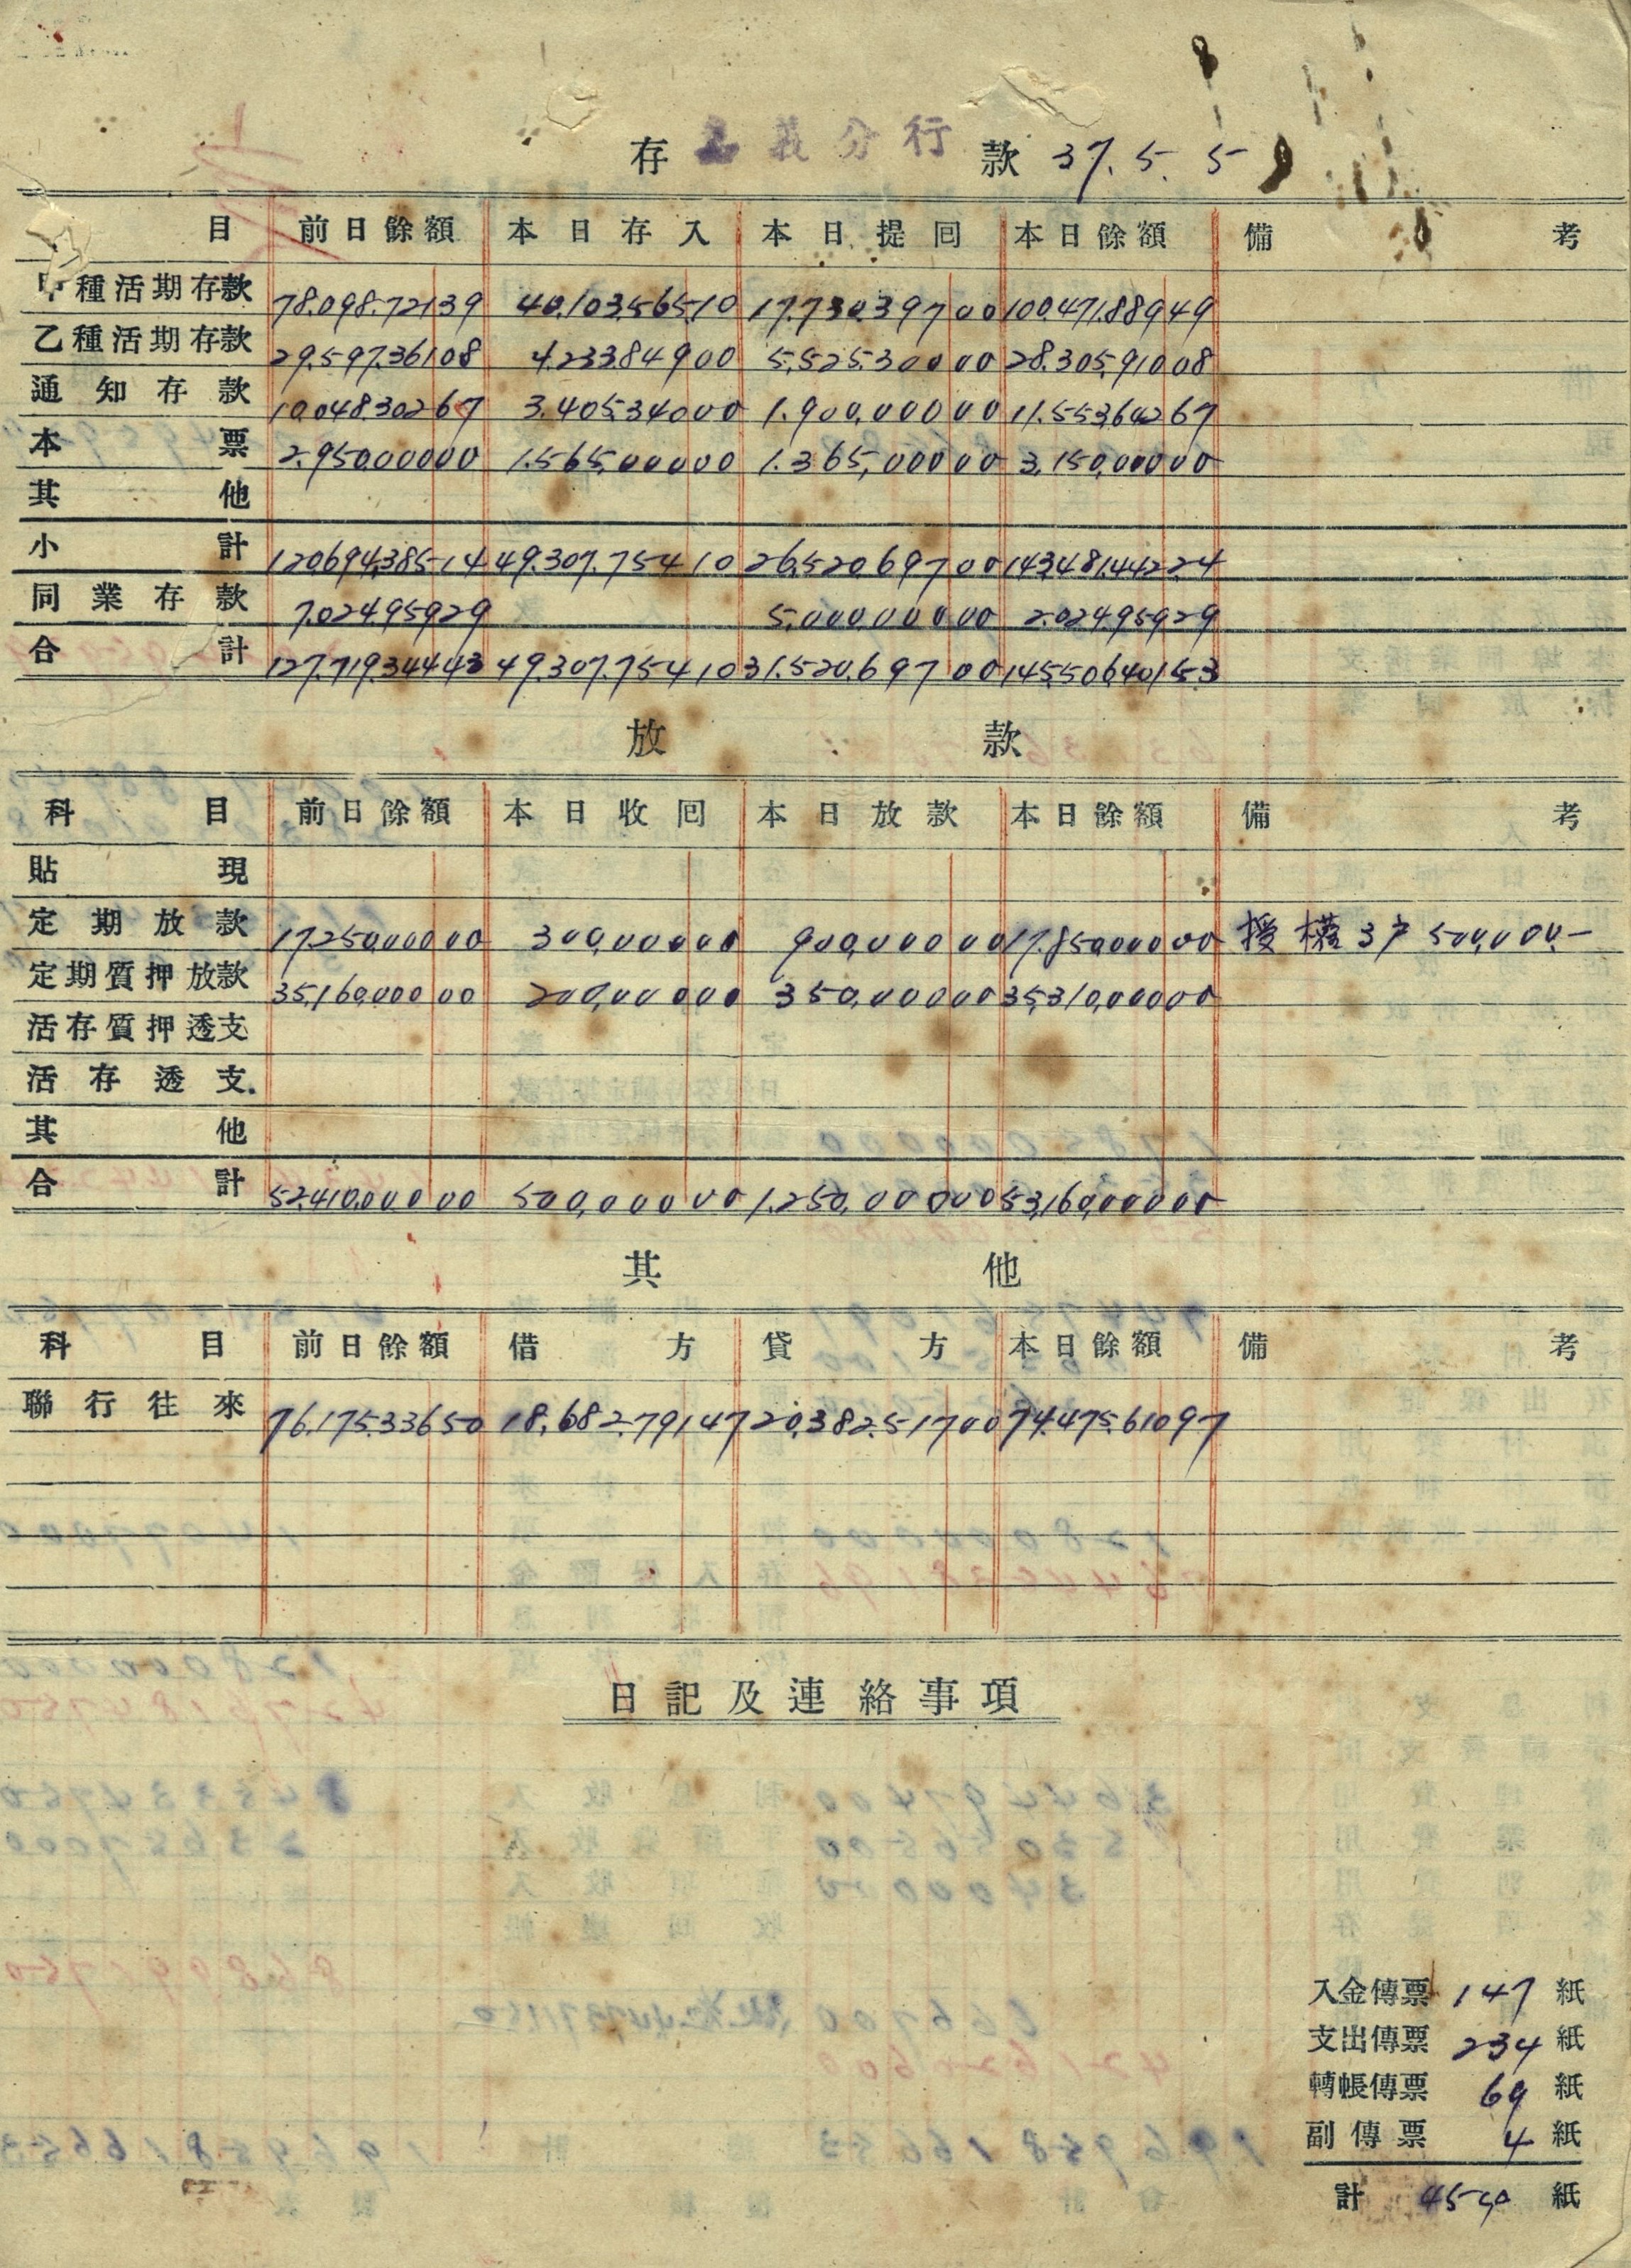 存 嘉義分行 款 37.5.5
目 前日餘額 本日存入 本日提回 本日餘額 備考
甲種活期存款 78,098,721.39 40,103,565.10 17,730,397.00 100,471,889.49
乙種活期存款 29,597,361.08 4,233,849.00 5,525,300.00 28,305,910.08
通知存款 10,048,302.67 3,405,340.00 1,900,000.00 11,553,642.67
本票 2,950,000.00 1,565,000.00 1,365,000.00 3,150,000.00
其他
小計 120,694,385.14 49,307,754.10 26,520,697.00 143,481,442.24
同業存款 7,024,959.29 5,000,000.00 2,024,959.29
合計 127,719,344.43 49,307,754.10 31,520,697.00 145,506,401.53
放款
科目 前日餘額 本日收回 本日放款 本日餘額 備考
貼現
定期放款 17,250,000.00 300,000.00 900,000.00 17,850,000.00 授權3戶 500,000.—
定期質押放款 35,160,000.00 200,000.00 350,000.00 35,310,000.00
活存質押透支
活存透支
其他
合計 52,410,000.00 500,000.00 1,250,000.00 53,160,000.00
其他
科目 前日餘額 借方 貸方 本日餘額 備考
聯行往來 76,175,336.50 18,682,791.47 20,382,517.00 74,475,610.97
日記及連絡事項
入金傳票 147 紙
支出傳票 234 紙
轉帳傳票 69 紙
副傳票 4 紙
計 紙